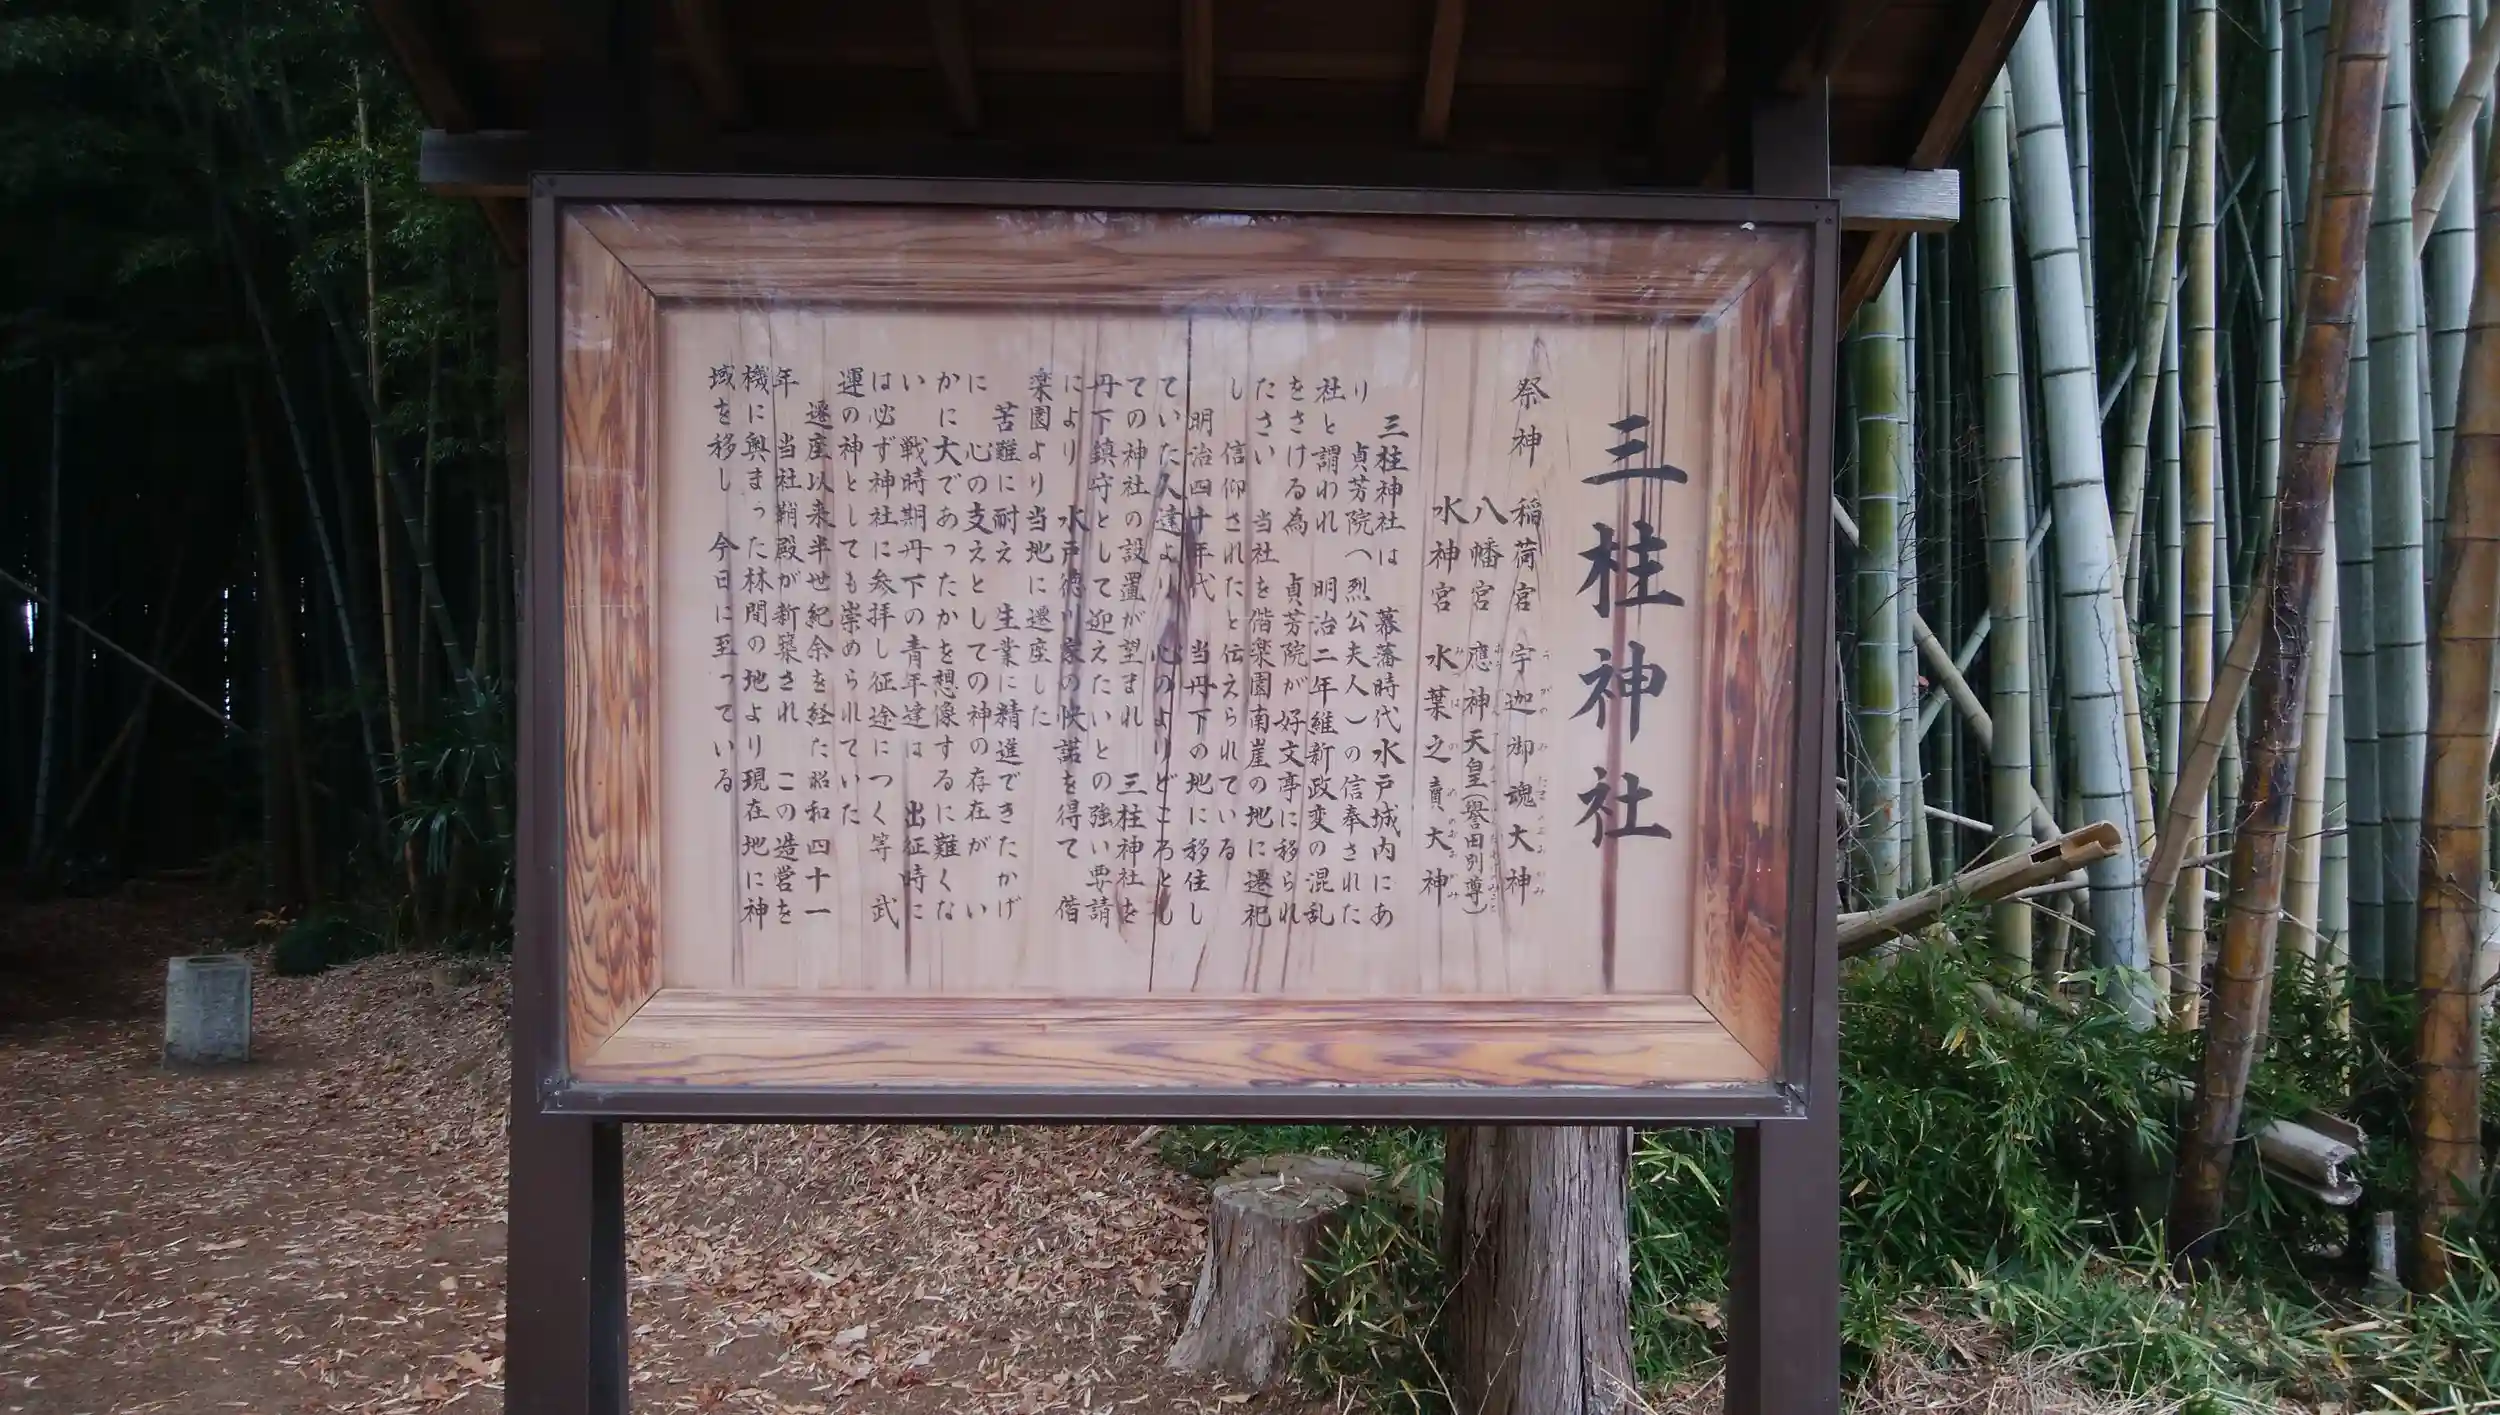 三柱神社
祭神 稲荷宮 宇迦御魂大神
八幡宮 應神天皇(譽田別尊)
水神宮 水葉之賣大神
三柱神社は 幕藩時代水戸城内にあ
り 貞芳院へ烈公夫人)の信奉された
社と謂われ 明治二年維新政変の混乱
をさける為 貞芳院が好文亭に移られ
たさい 当社を偕楽園南崖の地に遷祀
し 信仰されたと伝えられている
明治四十年代 当丹下の地に移住し
ていた人達より 心のよりどころとし
ての神社の設置が望まれ 三柱神社を
丹下鎮守として迎えたいとの強い要請
により 水戸徳川家の快諾を得て 偕
楽園より当地に遷座した
苦難に耐え 生業に精進できたかげ
に 心の支えとしての神の存在が い
かに大であったかを想像するに難くな
い 戦時期丹下の青年達は 出征時に
は必ず神社に参拝し征途につく等 武
運の神としても崇められていた
遷座以来半世紀余を経た昭和四十一
年 当社鞘殿が新築され この造営を
機に奥まった林間の地より現在地に神
域を移し 今日に至っている